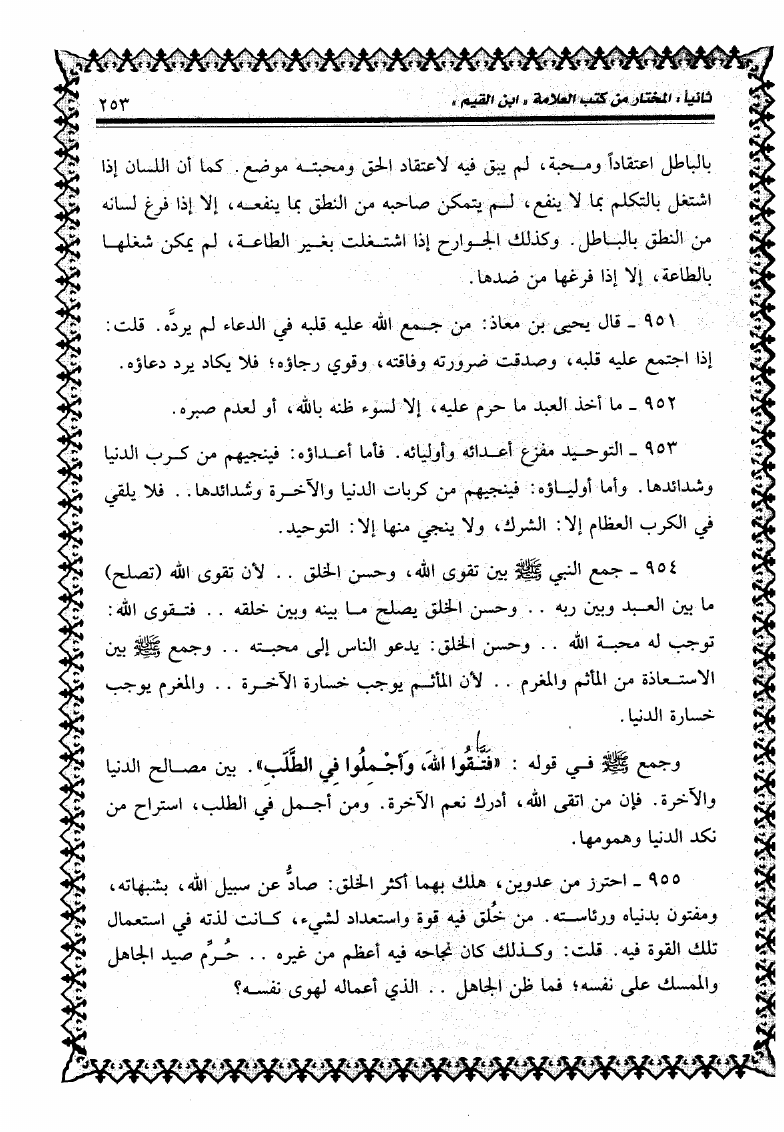 ثانياً : المختار من كتب العلامة « ابن القيم » ٢٥٣
بالباطل اعتقاداً ومحبة، لم يبق فيه لاعتقاد الحق ومحبته موضع. كما أن اللسان إذا
اشتغل بالتكلم بما لا ينفع، لم يتمكن صاحبه من النطق بما ينفعه، إلا إذا فرغ لسانه
من النطق بالباطل. وكذلك الجوارح إذا اشتغلت بغير الطاعة، لم يمكن شغلها
بالطاعة، إلا إذا فرغها من ضدها.
٩٥١ ـ قال يحيى بن معاذ: من جمع الله عليه قلبه في الدعاء لم يردَّه. قلت:
إذا اجتمع عليه قلبه، وصدقت ضرورته وفاقته، وقوي رجاؤه؛ فلا يكاد يرد دعاؤه.
٩٥٢ ـ ما أخذ العبد ما حرم عليه، إلا لسوء ظنه بالله، أو لعدم صبره.
٩٥٣ ـ التوحيد مفزع أعدائه وأوليائه. فأما أعداؤه: فينجيهم من كرب الدنيا
وشدائدها. وأما أولياؤه: فينجيهم من كربات الدنيا والآخرة وشدائدها.. فلا يلقي
في الكرب العظام إلا: الشرك، ولا ينجي منها إلا: التوحيد.
٩٥٤ ـ جمع النبي ﷺ بين تقوى الله، وحسن الخلق .. لأن تقوى الله (تصلح)
ما بين العبد وبين ربه .. وحسن الخلق يصلح ما بينه وبين خلقه .. فتقوى الله:
توجب له محبة الله .. وحسن الخلق: يدعو الناس إلى محبته .. وجمع ﷺ بين
الاستعاذة من المأثم والمغرم .. لأن المأثم يوجب خسارة الآخرة .. والمغرم يوجب
خسارة الدنيا.
وجمع ﷺ في قوله : «فَتَّقُوا اللهَ، وَأَجْمِلُوا فِي الطَّلَبِ». بين مصالح الدنيا
والآخرة. فإن من اتقى الله، أدرك نعم الآخرة. ومن أجمل في الطلب، استراح من
نكد الدنيا وهمومها.
٩٥٥ ـ احترز من عدوين، هلك بهما أكثر الخلق: صادُّ عن سبيل الله، بشبهاته،
ومفتون بدنياه ورئاسته. من خُلق فيه قوة واستعداد لشيء، كانت لذته في استعمال
تلك القوة فيه. قلت: وكذلك كان نجاحه فيه أعظم من غيره .. حُرِّم صيد الجاهل
والممسك على نفسه؛ فما ظن الجاهل .. الذي أعماله لهوى نفسه؟